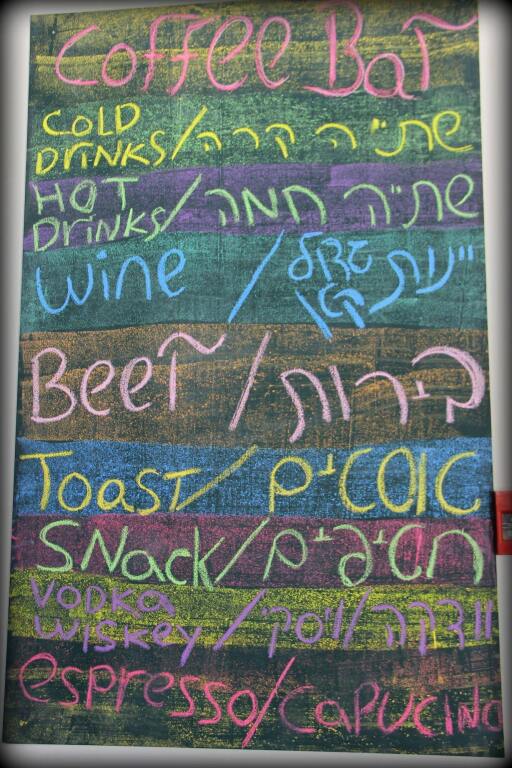 Coffee Bar
COLD
DrinKS/שתייה קרה
HOT
DrinKS/שתייה חמה
wine / יינות גדול
קטן
Beer / בירות
Toast/טוסטים
SNack/חטיפים
VODKA
WISKEY/וודקה/ויסקי
espresso/CaPUCINO